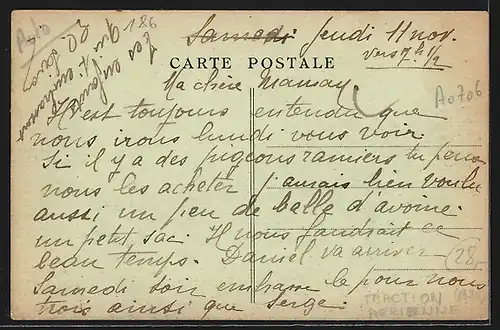 Samedi Jeudi 11 nov.
vers 7h 1/2
186
CARTE POSTALE
Ma chère Maman
Il est toujours entendu que
nous irons lundi vous voir.
Si il y a des pigeons ramiers tu peux
nous les acheter j'aurais bien voulu
aussi un peu de balle d'avoine.
un petit sac. Il nous faudrait ce
beau temps. Daniel va arriver
Samedi soir embrasse le pour nous
trois ainsi que Serge.
Les enfants
que
20
A0706
28
TRACTION
AERIENNE